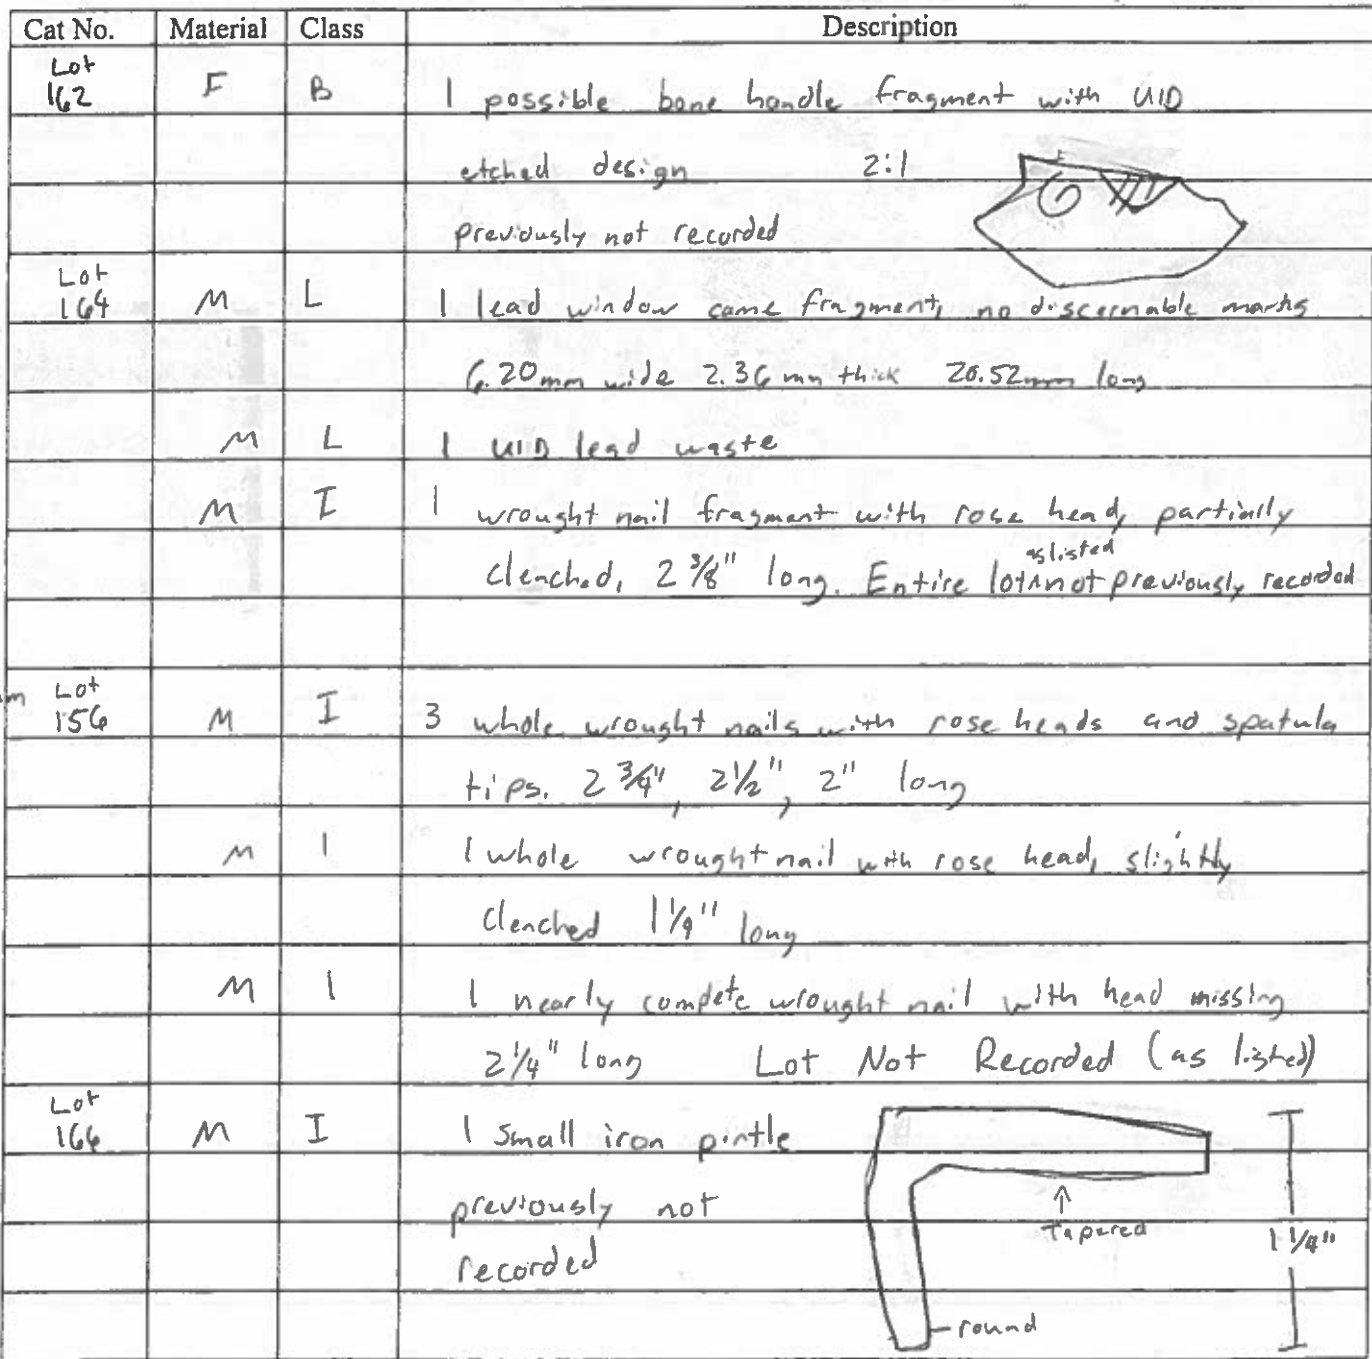 Cat No. Material Class Description
Lot
162 F B 1 possible bone handle fragment with UID
etched design 2:1
previously not recorded
Lot
164 M L 1 lead window came fragment, no discernable marks
6.20mm wide 2.36 mm thick 20.52mm long
M L 1 UID lead waste
M I 1 wrought nail fragment with rose head, partially
as listed
clenched, 2 3/8" long. Entire lot ^ not previously recorded
Lot
156 M I 3 whole wrought nails with rose heads and spatula
tips. 2 3/4", 2 1/2", 2" long
M I 1 whole wrought nail with rose head, slightly
clenched 1 1/4" long
M I 1 nearly compete wrought nail with head missing
2 1/4" long Lot Not Recorded (as listed)
Lot
166 M I 1 small iron pintle
previously not
Tapered 1 1/4"
recorded
round